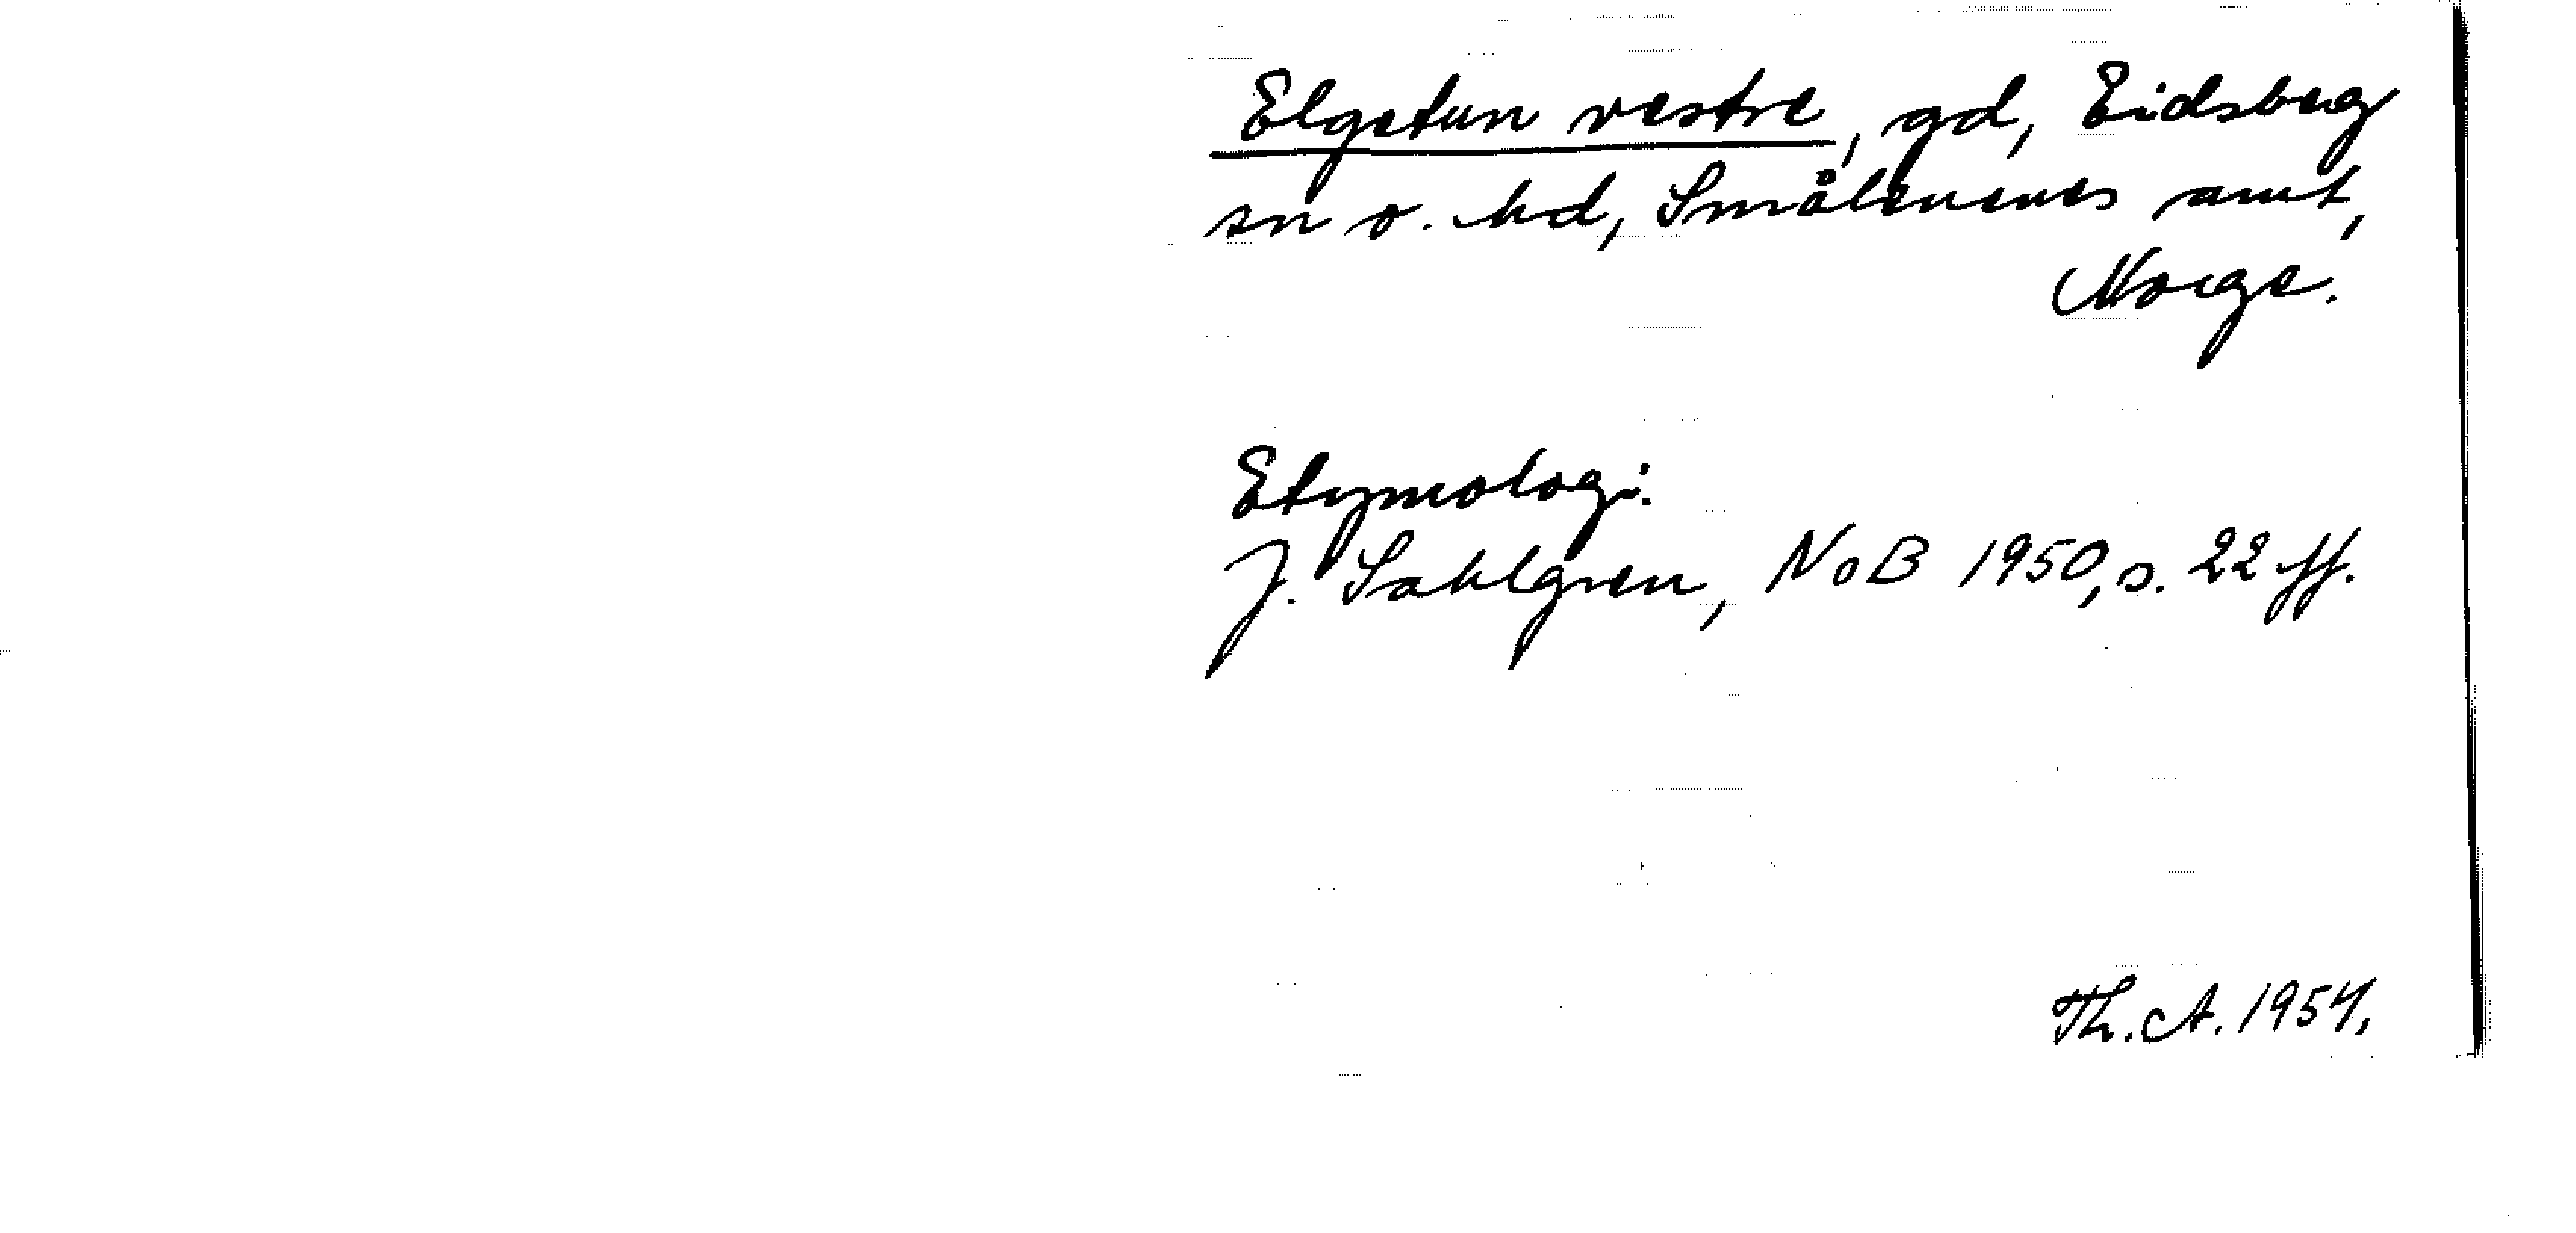 Elgetun vestre, gd, Eidsberg
sn o. hd, Smålenenes amt,
Norge.
Etymologi.
J. Sahlgren, NoB 1950, s. 22 ff.
Th. A. 1954.